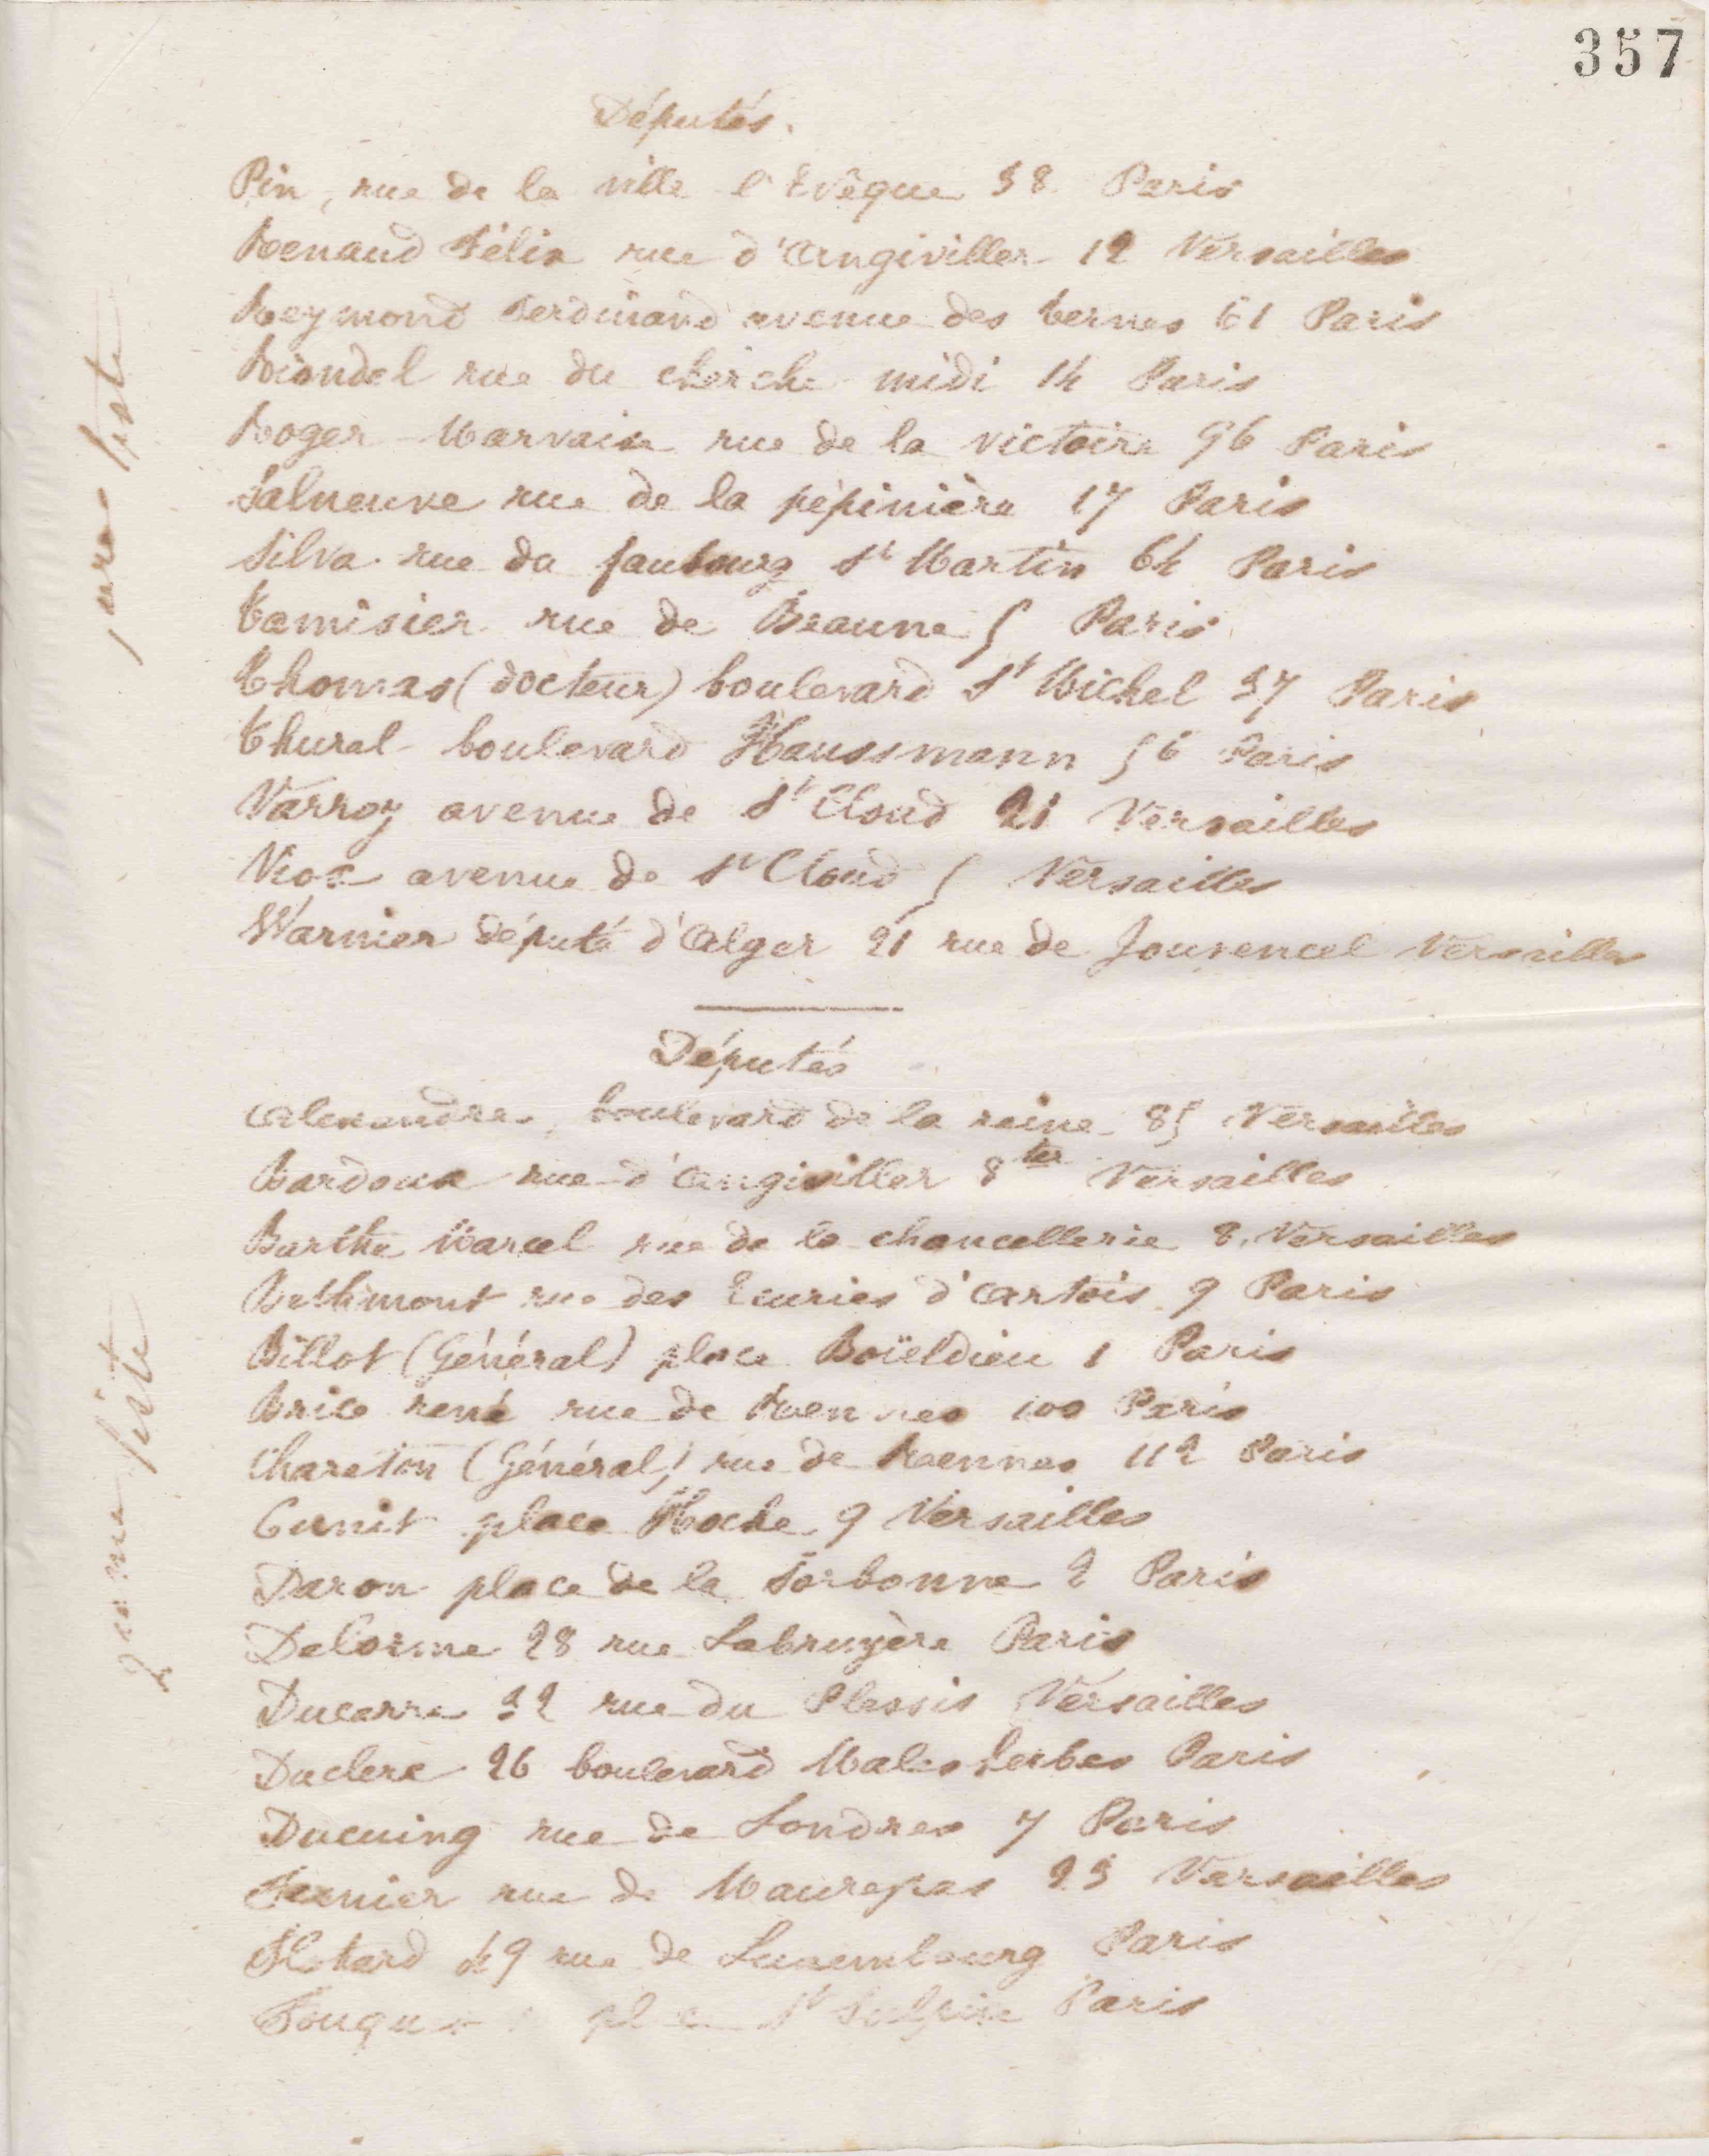 357
Députés.
Pin, rue de la ville l'Evêque 38 Paris
Renaud Félix rue d'Angiviller 12 Versailles
Reymond Ferdinand avenue des ternes 61 Paris
Riondel rue du cherche midi 14 Paris
Roger-Marvaise rue de la victoire 96 Paris
Salneuve rue de la pépinière 17 Paris
Silva rue du faubourg St Martin 64 Paris
Tamisier rue de Beaune 5 Paris
Thomas (docteur) boulevard St Michel 37 Paris
Thurel boulevard Haussmann 56 Paris
Varroy avenue de St Cloud 21 Versailles
Viox avenue de St Cloud 5 Versailles
Warnier député d'Alger 21 rue de Jouvencel Versailles
Députés
Alexandre, boulevard de la reine 85 Versailles
Bardoux rue d'Angiviller 8 ter Versailles
Barthe Marcel rue de la chancellerie 8. Versailles
Bethmont rue des Ecuries d'Artois 9 Paris
Billot (Général) place Boïeldieu 1 Paris
Brice rené rue de Rennes 100 Paris
Chareton (Général) rue de Rennes 112 Paris
Cunit place Hoche 9 Versailles
Daron place de la Sorbonne 2 Paris
Delorme 28 rue Labruyère Paris
Ducarre 22 rue du Plessis Versailles
Duclerc 26 boulevard Malesherbes Paris
Ducuing rue de Londres 7 Paris
Fernier rue de Maurepas 23 Versailles
Flotard 49 rue de Luxembourg Paris
Fouquet place St Sulpice Paris
1ere liste
2eme liste